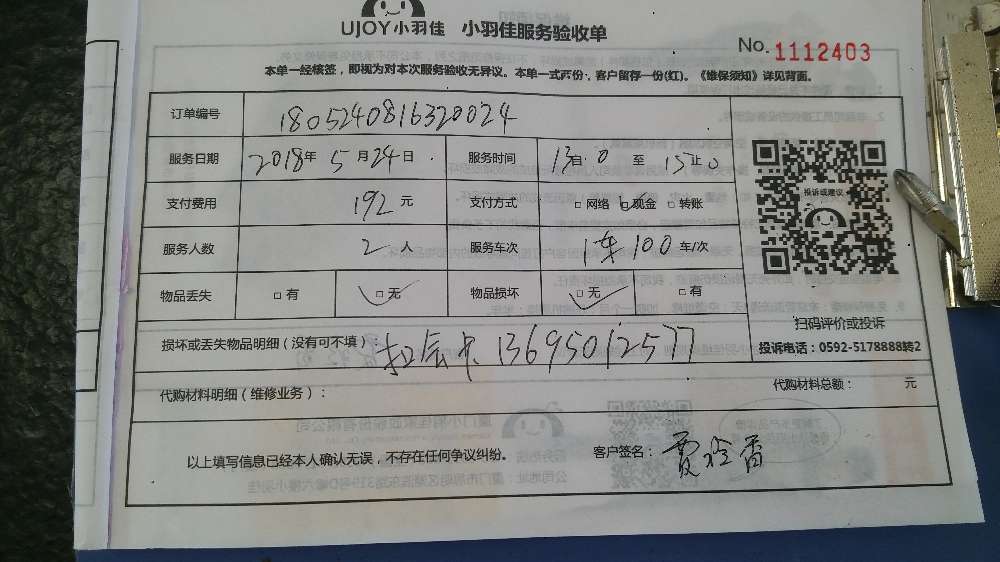 UJOY小羽佳 小羽佳服务验收单
No. 1112403
本单一经核签，即视为对本次服务验收无异议。本单一式两份，客户留存一份(红)。《维保须知》详见背面。
订单编号 1805240816320024
服务日期 2018年 5月24日 服务时间 13:0 至 15止0
支付费用 192元 支付方式 □网络 □现金 □转账
投诉或建议
服务人数 2人 服务车次 1车100车/次
物品丢失 □有 □无 物品损坏 □无 □有
扫码评价或投诉
损坏或丢失物品明细（没有可不填）： 13695012577
投诉电话：0592-5178888转2
代购材料明细（维修业务）： 代购材料总额： 元
以上填写信息已经本人确认无误，不存在任何争议纠纷。 客户签名：